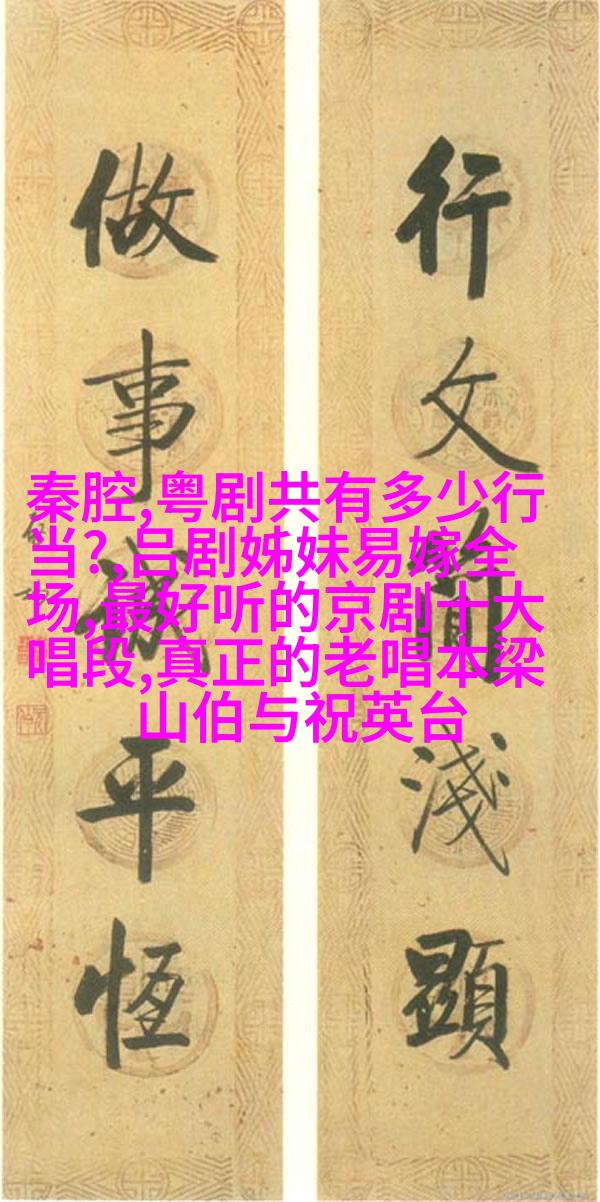 行文簡淺顯
做事誠平恆
秦腔,粤剧共有多少行
当?,吕剧姊妹易嫁全
场,最好听的京剧十大
唱段,真正的老唱本梁
山伯与祝英台